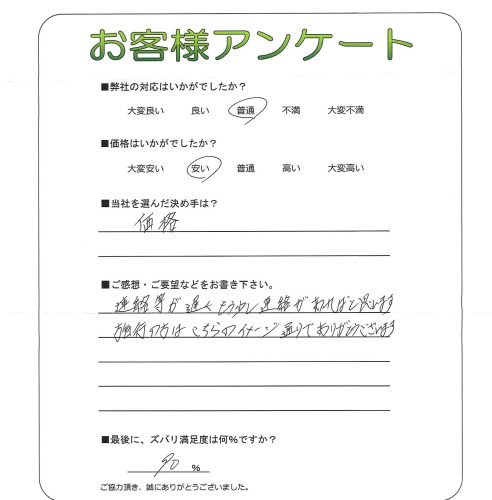 お客様アンケート
■弊社の対応はいかがでしたか？
大変良い 良い 普通 不満 大変不満
■価格はいかがでしたか？
大変安い 安い 普通 高い 大変高い
■当社を選んだ決め手は？
価格
■ご感想・ご要望などをお書き下さい。
連絡等が遅くもう少し連絡があればと思います
施行の方はこちらのイメージ通りでありがとうございます
■最後に、ズバリ満足度は何%ですか？
90 %
ご協力頂き、誠にありがとうございました。